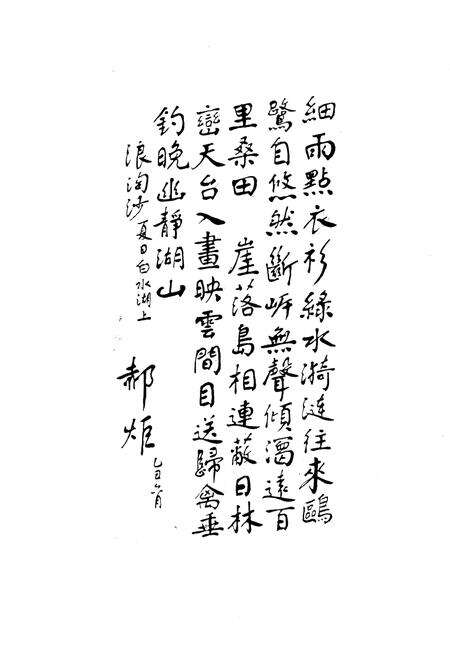 細雨點衣衫綠水漪漣往來鷗
鷺自悠然斷岍無聲傾瀉遠百
里桑田 崖落島相連蔽日林
巒天台入畫映雲間目送歸禽垂
釣晚幽靜湖山
浪淘沙 夏日白水湖上
郝炬 乙丑月